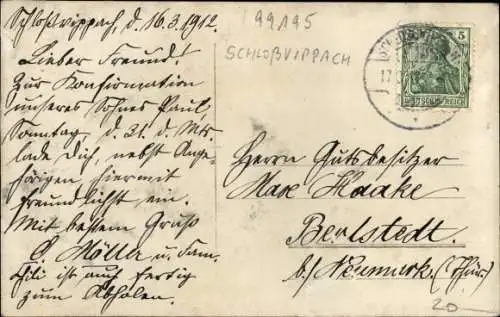 Schloßvippach, d. 16.3.1912.
99195
SCHLOßVIPPACH
Lieber Freund!
Zur Konfirmation
unseres Sohnes Paul,
Sonntag, d. 31. d. Mts.
lade Dich, nebst Ange-
hörigen hiermit
freundlichst ein.
Mit bestem Gruß
Möller u. Fam.
ist auch fertig
zum Abholen.
5
DEUTSCHES REICH
Herrn Gutsbesitzer
Max Haake
Berlstedt.
b/ Neumark. (Thür.)
20-